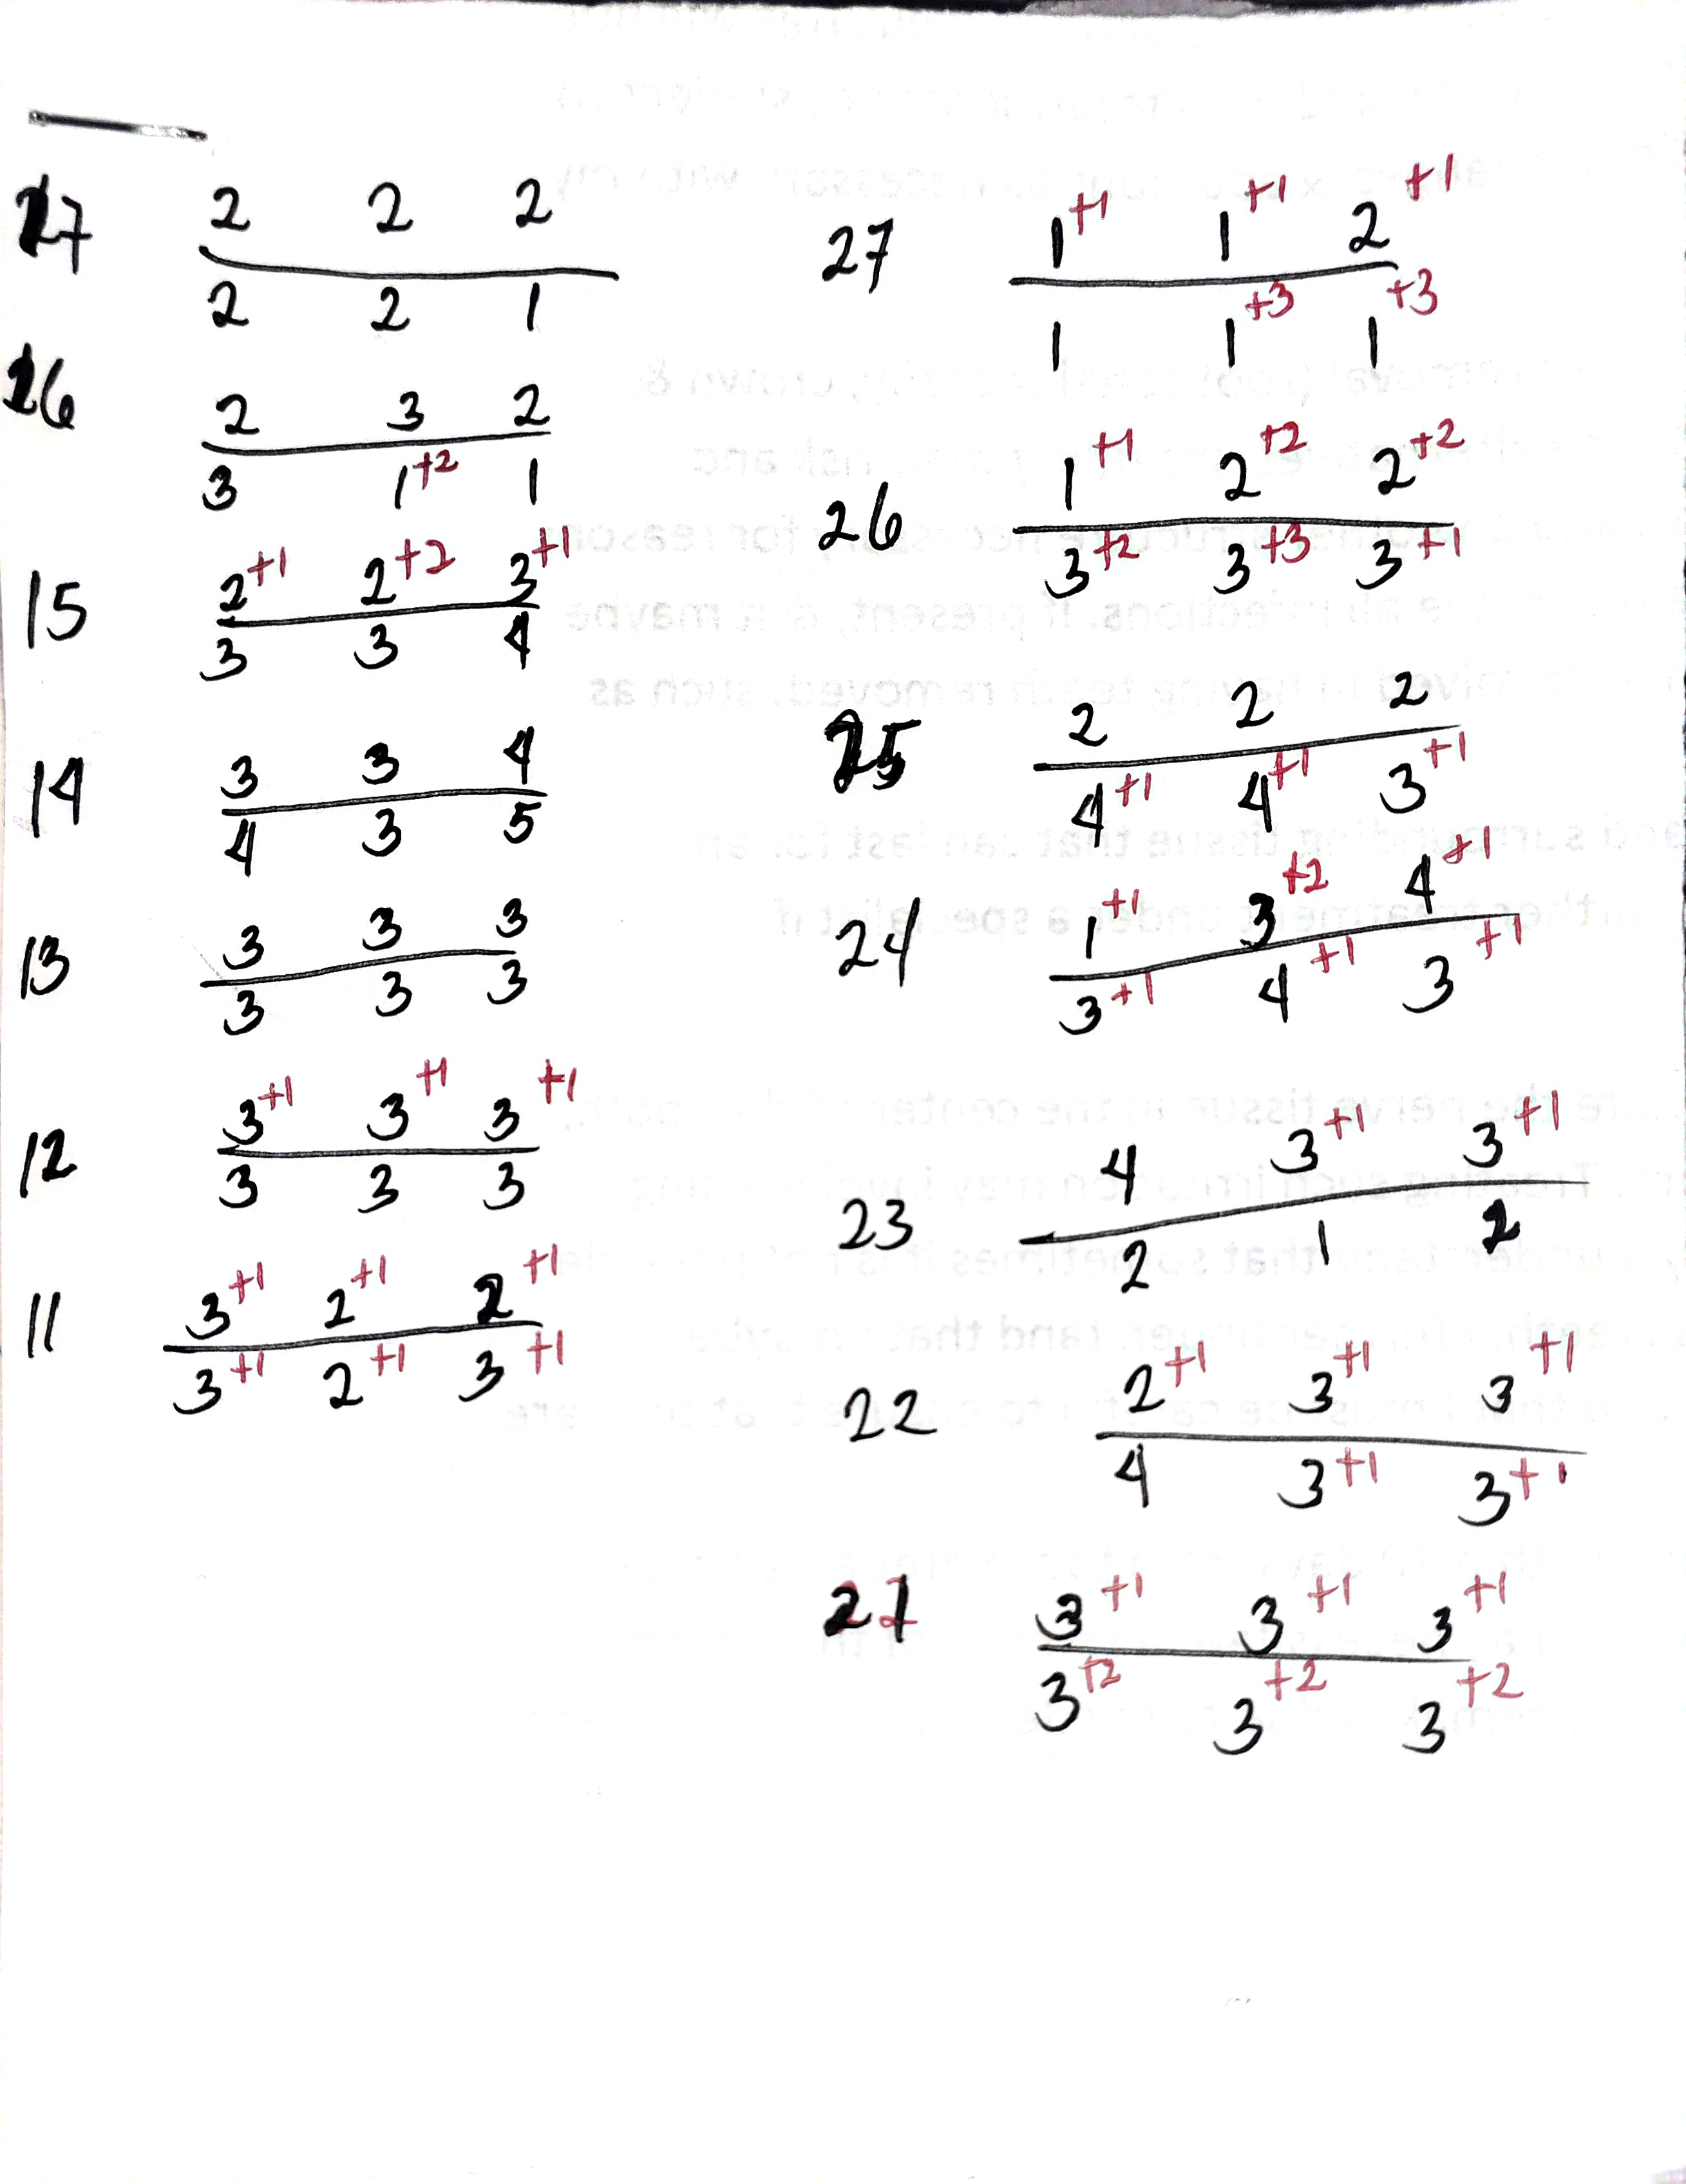 17 2 2 2
2 2 1
16 2 3 2
3 1+2 1
15 2+1 2+2 3+1
3 3 4
14 3 3 4
4 3 5
13 3 3 3
3 3 3
12 3+1 3+1 3+1
3 3 3
11 3+1 2+1 2+1
3+1 2+1 3+1
27 1+1 1+1 2+1
1 1+3 1+3
26 1+1 2+2 2+2
3+2 3+3 3+1
25 2 2 2
4+1 4+1 3+1
24 1+1 3+2 4+1
3+1 4+1 3+1
23 4 3+1 3+1
2 1 2
22 2+1 3+1 3+1
4 3+1 3+1
21 3+1 3+1 3+1
3+2 3+2 3+2